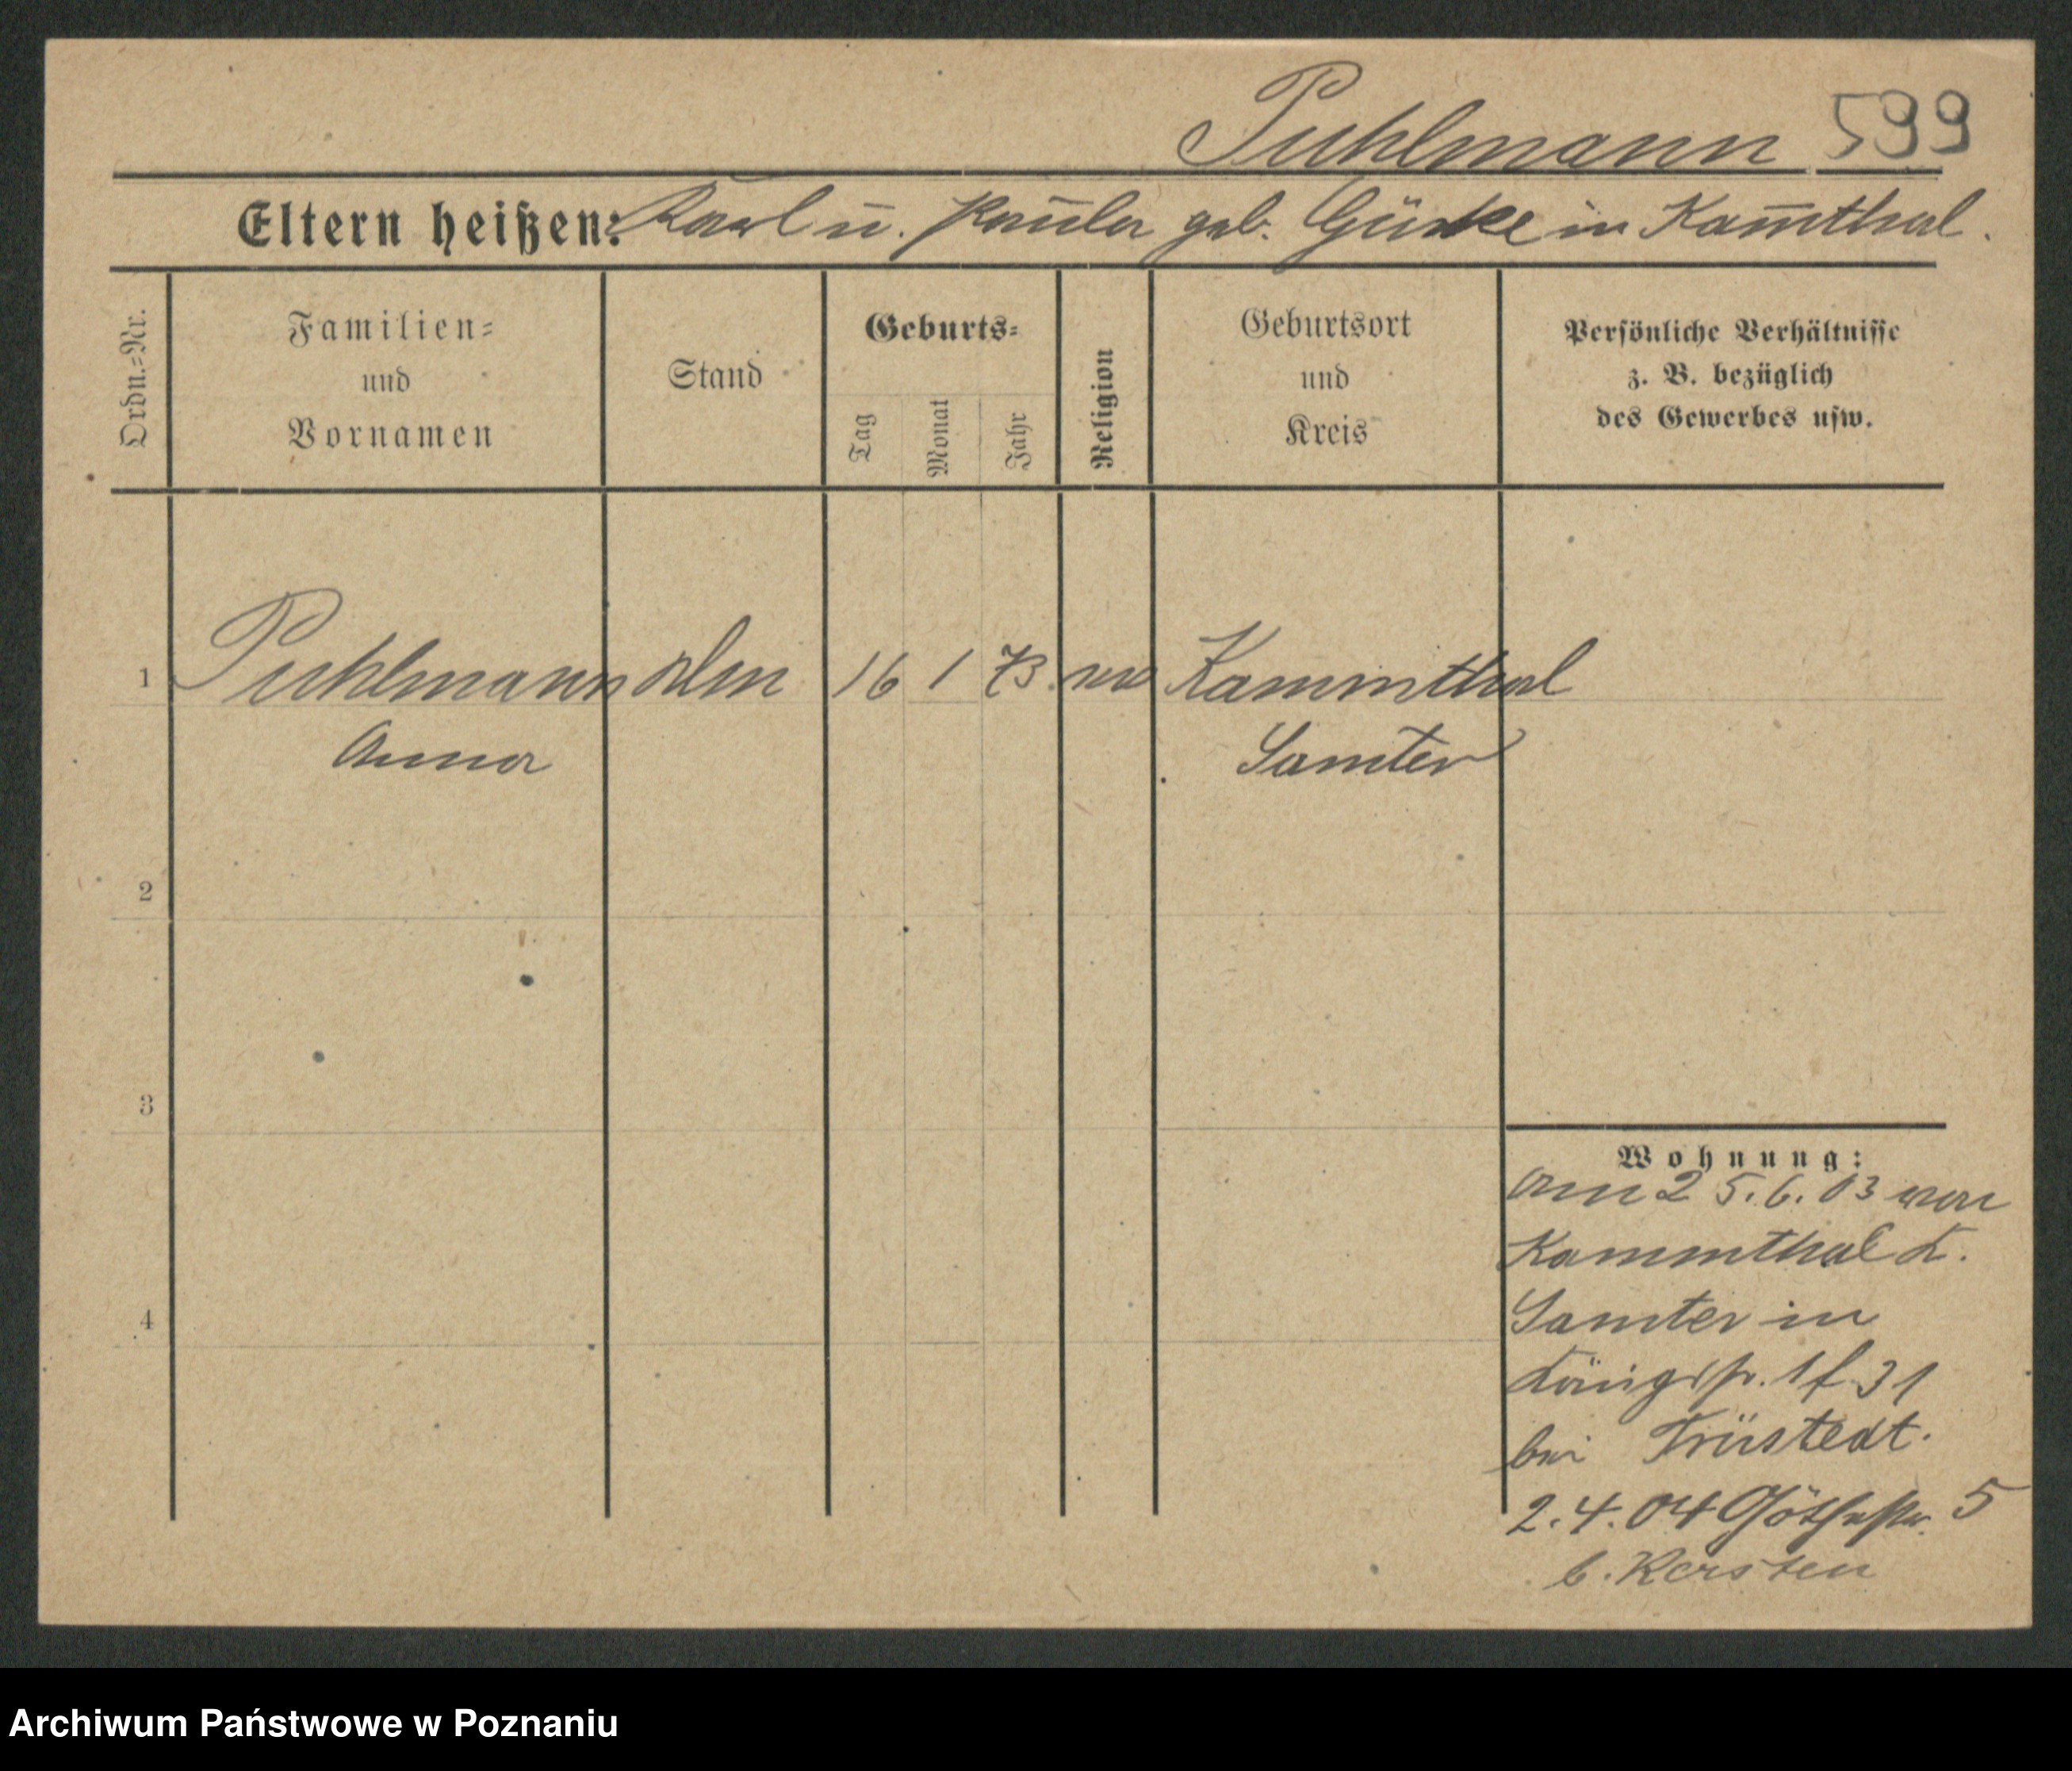 Puhlmann 599
Eltern heißen: Karl u. Paula geb. Gürke in Kam̅thal.
Ordn.=Nr.
Familien=
und
Vornamen
Stand
Geburts=
Tag
Monat
Jahr
Religion
Geburtsort
und
Kreis
Persönliche Verhältnisse
z. B. bezüglich
des Gewerbes usw.
1 Puhlmann 16 1 73 Kammthal
Anna Samter
2
3
4
Wohnung:
am 25.6.03 von
Kammthal K.
Samter in
Königspl. 31
bei Trüstedt.
2.4.04 Göthestr. 5
b. Kersten
Archiwum Państwowe w Poznaniu